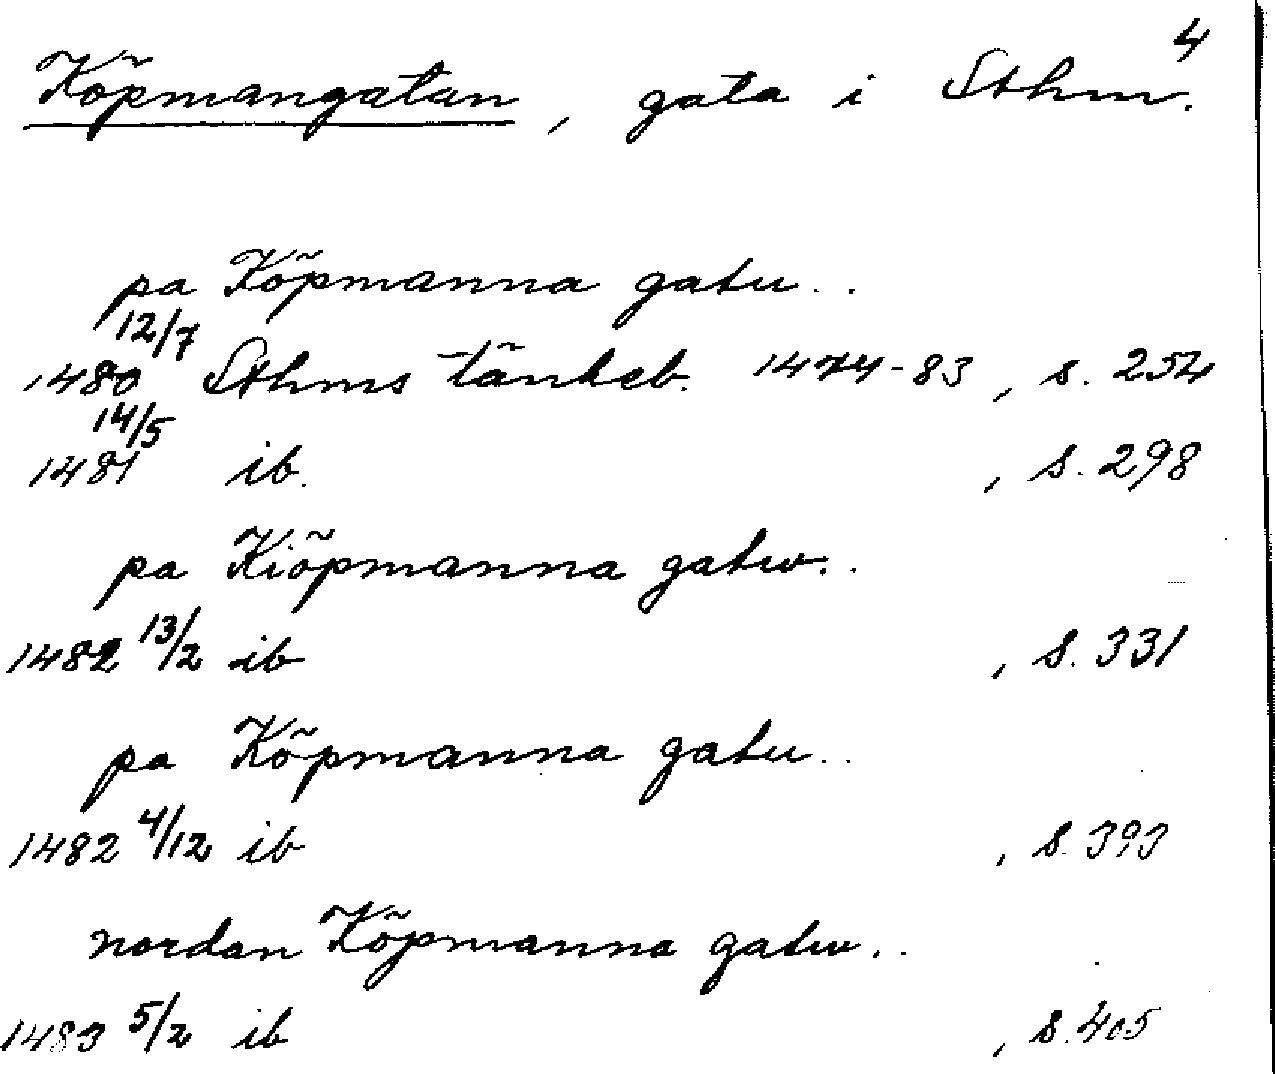 4
Köpmangatan, gata i Sthm.
pa Köpmanna gatu..
12/7
1480 Sthms tänkeb. 1474-83, s. 254
14/5
1481 ib. , s. 298
pa Kiöpmanna gatw..
1482 13/2 ib , s. 331
pa Köpmanna gatu..
1482 4/12 ib , s. 393
nordan Köpmanna gatw..
1483 5/2 ib , s. 405